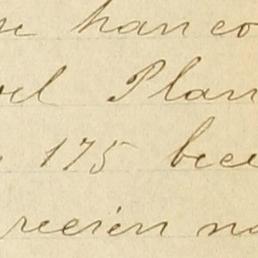 han co
el Plan
175 bece
recien na